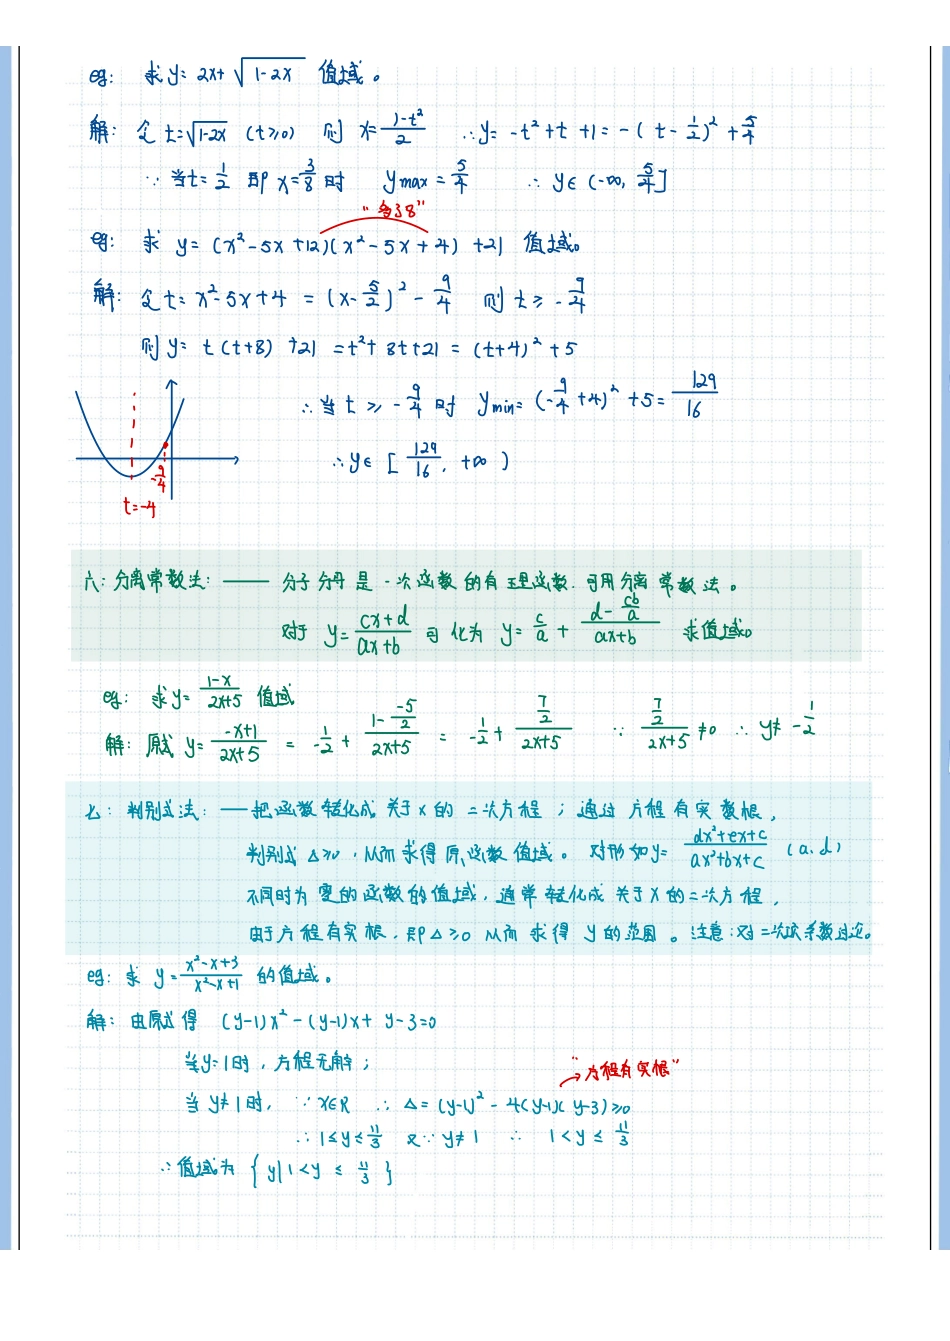 eg: 求 y= 2x+√(1-2x) 值域。
解: 令 t=√(1-2x) (t≥0) 则 x=(1-t²)/2 ∴y= -t²+t+1= -(t-1/2)²+5/4
∵ 当t=1/2 即 x=3/8 时 ymax=5/4 ∴ y∈(-∞, 5/4]
"多了8"
eg: 求 y=(x²-5x+12)(x²-5x+4)+21 值域。
解: 令t=x²-5x+4 =(x-5/2)²-9/4 则 t≥-9/4
则 y= t(t+8)+21 =t²+8t+21=(t+4)²+5
∴当 t≥-9/4 时 ymin=(-9/4+4)²+5=129/16
∴y∈[129/16, +∞)
-9/4
t=-4
六: 分离常数法: —— 分子分母是一次函数的有理函数.可用分离常数法。
对于 y=(cx+d)/(ax+b) 可化为 y=c/a+(d-cb/a)/(ax+b) 求值域。
eg: 求y=(1-x)/(2x+5) 值域
解: 原式 y=(-x+1)/(2x+5) = -1/2+(1--5/2)/(2x+5) = -1/2+(7/2)/(2x+5) ∵ (7/2)/(2x+5)≠0 ∴ y≠-1/2
七: 判别式法: ——把函数转化成关于x的二次方程; 通过方程有实数根,
判别式△≥0,从而求得原函数值域。对形如y=(dx²+ex+c)/(ax²+bx+c) (a、d)
不同时为零的函数的值域,通常转化成关于x的二次方程,
由于方程有实根,即△≥0从而求得y的范围。注意:对二次项系数讨论。
eg: 求 y=(x²-x+3)/(x²-x+1) 的值域。
解: 由原式得 (y-1)x²-(y-1)x+y-3=0
当y=1时,方程无解;
"方程有实根"
当y≠1时, ∵x∈R ∴△=(y-1)²-4(y-1)(y-3)≥0
∴1≤y≤11/3 又∵y≠1 ∴ 1<y≤11/3
∴值域为 {y|1<y≤11/3}